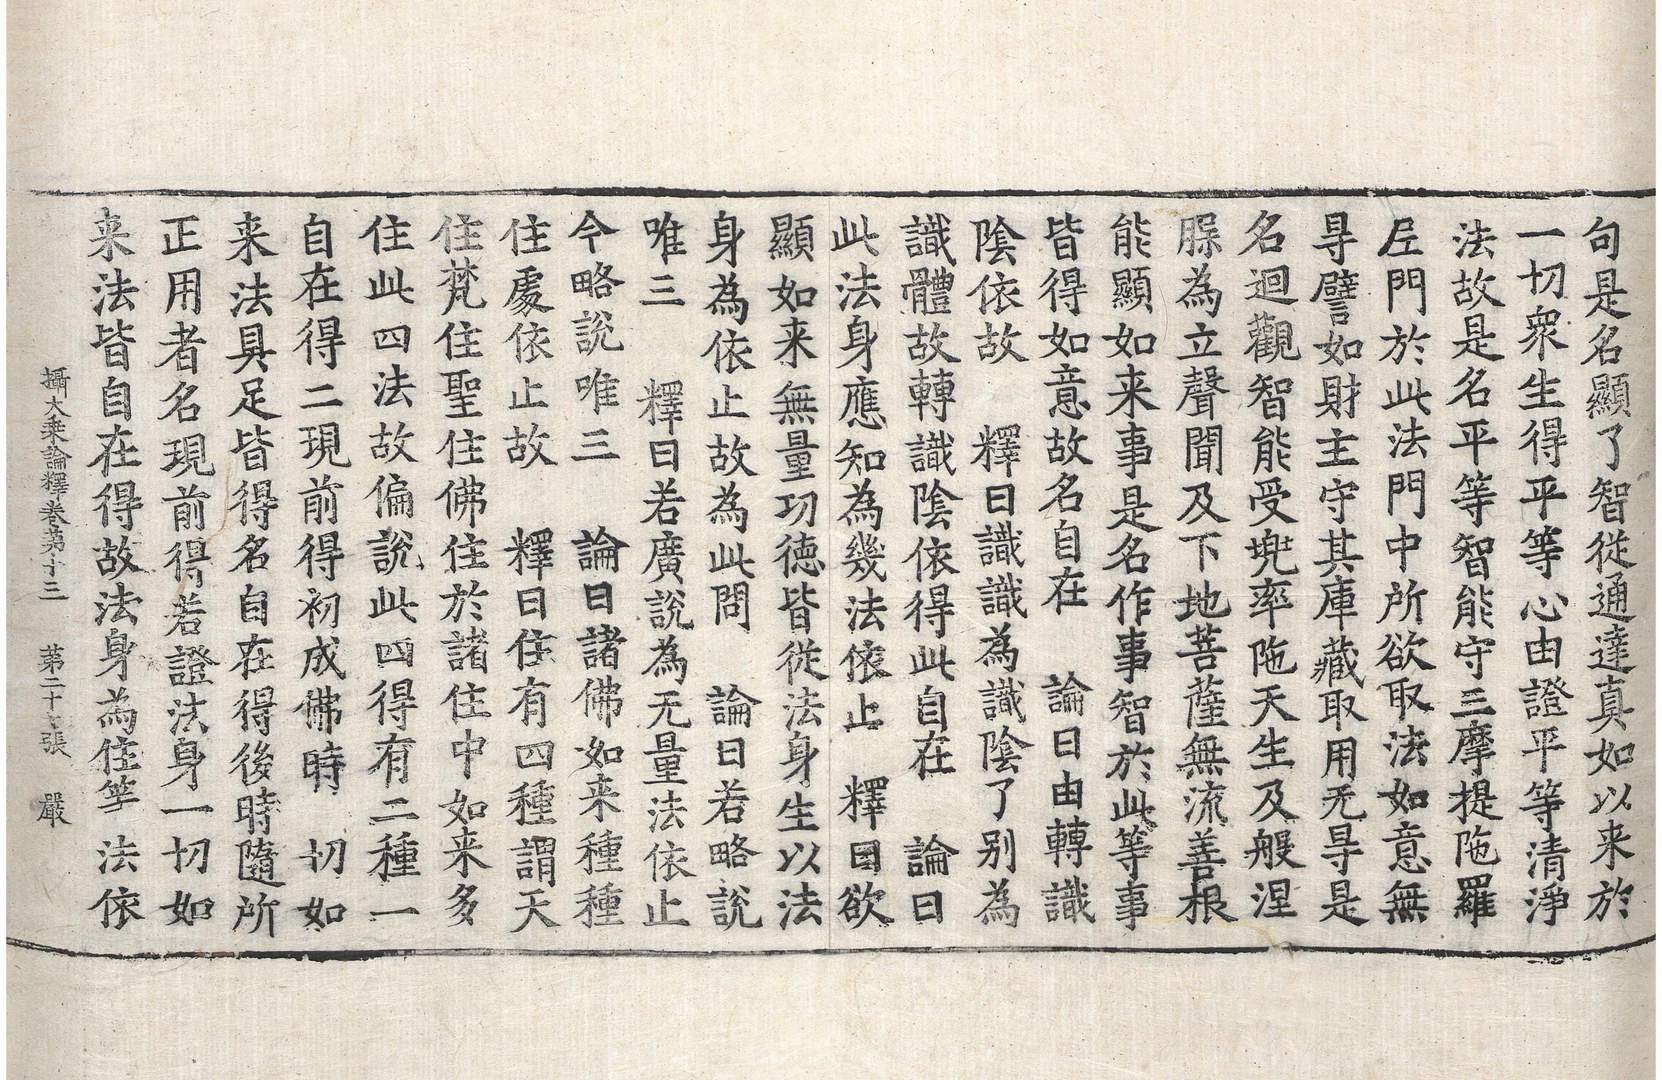 句是名顯了智從通達真如以来於
一切衆生得平等心由證平等清淨
法故是名平等智能守三摩提陁羅
尼門於此法門中所欲取法如意無
㝵譬如財主守其庫藏取用无㝵是
名迴觀智能受兜率陁天生及般涅
脲為立聲聞及下地菩薩無流善根
能顯如来事是名作事智於此等事
皆得如意故名自在　論曰由轉識
陰依故　釋曰識識為識陰了別為
識體故轉識陰依得此自在　論曰
此法身應知為幾法依止　釋曰欲
顯如来無量功徳皆從法身生以法
身為依止故為此問　論曰若略說
唯三　釋曰若廣說為无量法依止
今略說唯三　論曰諸佛如来種種
住處依止故　釋曰住有四種謂天
住梵住聖住佛住於諸住中如来多
住此四法故偏說此四得有二種一
自在得二現前得初成佛時　切如
来法具足皆得名自在得後時隨所
正用者名現前得若證法身一切如
来法皆自在得故法身為住等法依
攝大乘論釋卷第十三　第二十　張　嚴